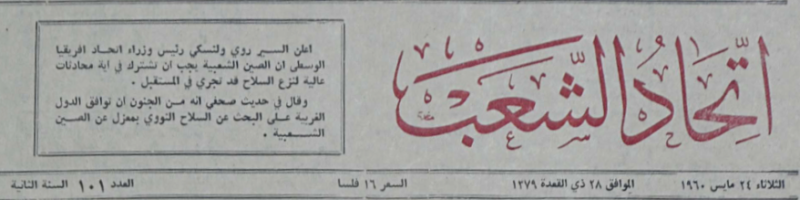 اتحاد الشعب
اعلن السير روي ولنسكي رئيس وزراء اتحاد افريقيا
الوسطى ان الصين الشعبية يجب ان تشترك في اية محادثات
عالية لنزع السلاح قد تجري في المستقبل .
وقال في حديث صحفي انه من الجنون ان توافق الدول
الغربية على البحث عن السلاح النووي بمعزل عن الصين
الشعبية .
الثلاثاء ٢٤ مايس ١٩٦٠ الموافق ٢٨ ذي القعدة ١٢٧٩ السعر ١٦ فلسا العدد ١٠١ السنة الثانية